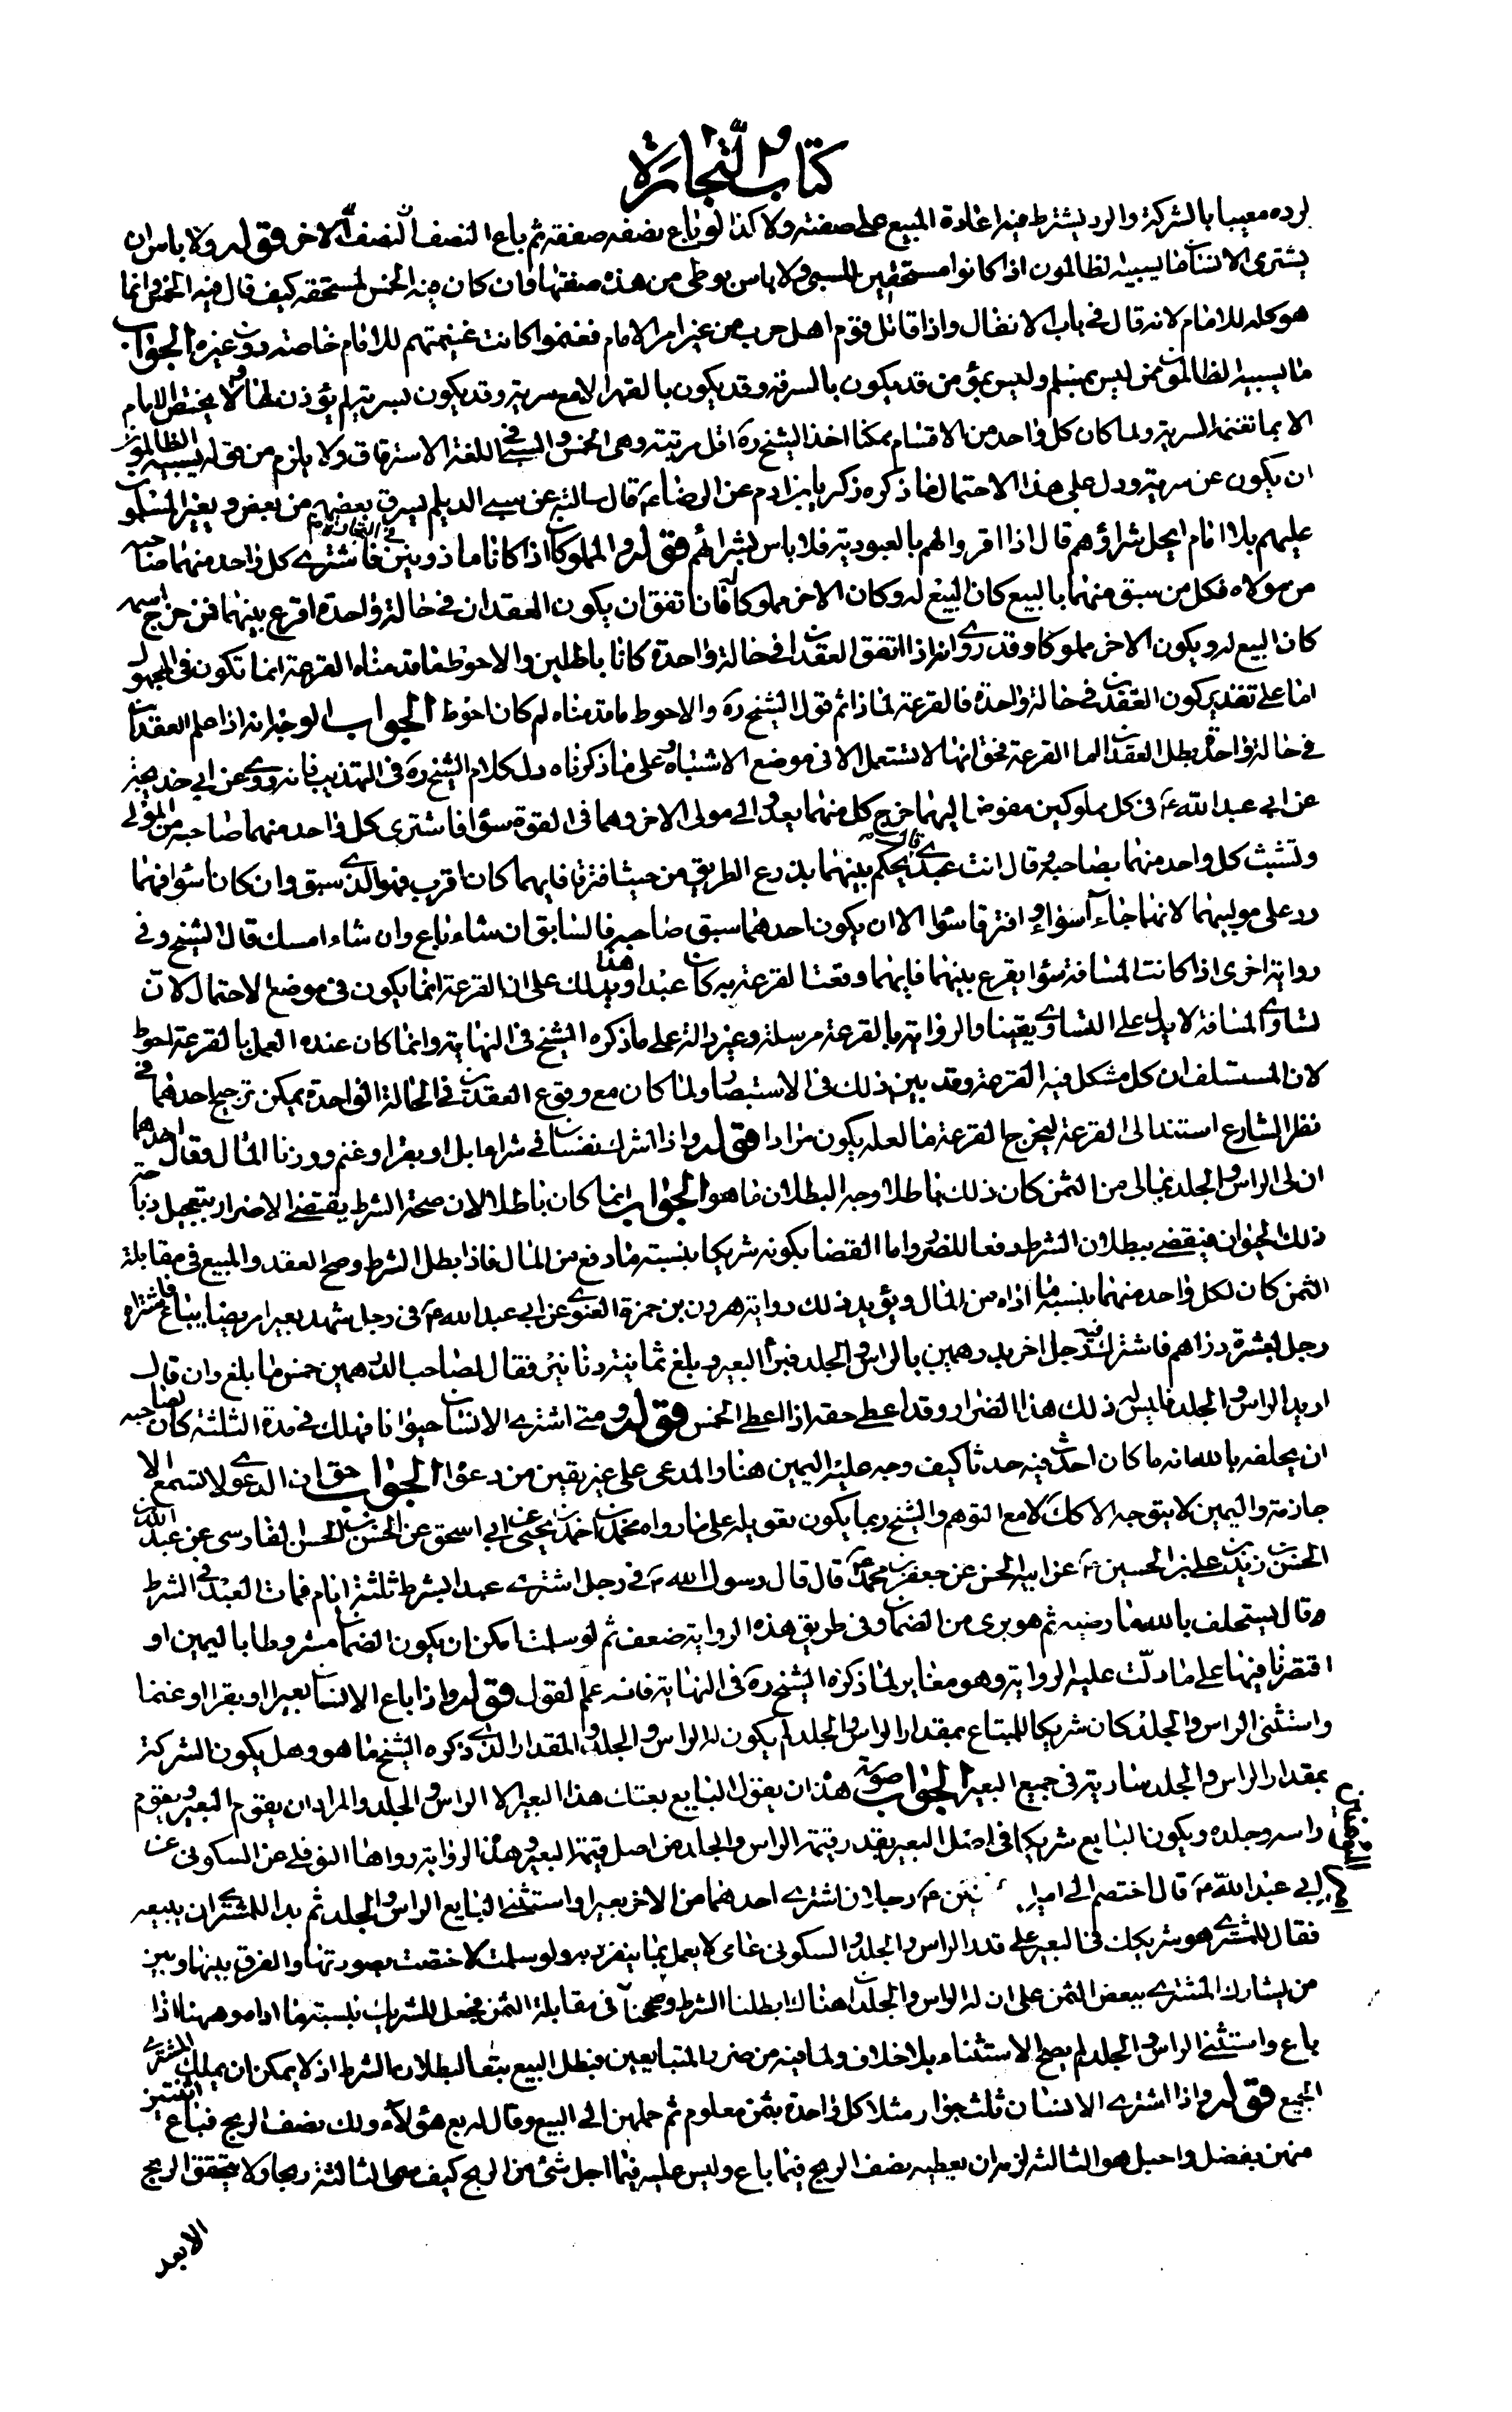 كتاب التجارة
لرده معيبا بالشركة والرد يشترط فيه اعادة المبيع على صفته ولا كذا لو باع نصفه صفقة ثم باع النصف النصف الاخر قوله ولا باس ان
يشترى الانسان ما يسبيه الظالمون اذا كانوا مستحقين للسبى ولا باس بوطى من هذه صفتها وان كان فيه الخمس لمستحقه كيف قال فيه الخمس وانما
هو كله للامام لانه قال فى باب الانفال واذا قاتل قوم اهل حرب من غير امر الامام فغنموا كانت غنيمتهم للامام خاصة دون غيره الجواب
ما يسبيه الظالمون ممن ليس بمسلم وليس بمؤمن قد يكون بالسرقة وقد يكون بالقهر لا مع سرية وقد يكون لسرية لم يؤذن لها ولا يختص الامام
الا بما تغنمه السرية ولما كان كل واحد من الاقسام ممكنا اخذ الشيخ ره اقل مرتبة وهى الخمس والسبى فى اللغة الاسترقاق ولا يلزم من قوله يسبيه الظالمون
ان يكون عن سرية ودل على هذا الاحتمال ما ذكره زكريا بن ادم عن الرضا ع قال سالته عن سبى الديلم يسرق بعضهم من بعض ويغير المسلمون
عليهم بلا امام ايحل شراؤهم قال اذا اقروا لهم بالعبودية فلا باس بشرائهم قوله والمملوكان اذا كانا ماذونين فى التجارة فاشترى كل واحد منهما صاحبه
من مولاه فكل من سبق منهما بالبيع كان البيع له وكان الاخر مملوكا فان اتفق ان يكون العقدان فى حالة واحدة اقرع بينهما فمن خرج اسمه
كان البيع له ويكون الاخر مملوكا وقد روى انه اذا اتفق العقدان فى حالة واحدة كانا باطلين والاحوط ما قدمناه القرعة انما تكون فى المجهول
اما على تقدير كون العقدين فى حالة واحدة فالقرعة لماذا ثم قول الشيخ ره والاحوط ما قدمناه لم كان احوط الجواب الوجه انه اذا علم العقدان
فى حالة واحدة بطل العقدان اما القرعة فحق انها لا تستعمل الا فى موضع الاشتباه وعلى ما ذكرناه دل كلام الشيخ ره فى التهذيب فانه روى عن ابى خديجة
عن ابى عبد الله ع فى كل مملوكين مفوض اليهما خرج كل منهما يعدو الى مولى الاخر وهما فى القوة سواء فاشترى كل واحد منهما صاحبه من المولى
وتشبث كل واحد منهما بصاحبه وقال انت عبدى قال يحكم بينهما بذرع الطريق من حيث افترقا فايهما كان اقرب فهو الذى سبق وان كانا سواء فهما
رد على مولييهما لانهما جاءا سواء وافترقا سواء الا ان يكون احدهما سبق صاحبه فالسابق ان شاء باع وان شاء امسك قال الشيخ وفى
رواية اخرى اذا كانت المسافة سواء يقرع بينهما فايهما وقعت القرعة به كان عبدا وهذا يدلك على ان القرعة انما يكون فى موضع الاحتمال لان
تساوى المسافة لا يدل على التساوى يقينا والرواية بالقرعة مرسلة وغير دالة على ما ذكره الشيخ فى النهاية وانما كان عنده العمل بالقرعة احوط
لان المستسلف ان كل مشكل فيه القرعة وقد بين ذلك فى الاستبصار ولما كان مع وقوع العقدين فى الحالة الواحدة يمكن ترجيح احدهما فى
نظر الشارع استند الى القرعة ليخرج القرعة ما لعله يكون مرادا قوله واذا اشرك نفسان فى شراء ابل او بقر او غنم ووزنا المال وقال احدهما
ان لى الراس والجلد بمالى من الثمن كان ذلك باطلا وجه البطلان ما هو الجواب انما كان باطلا لان صحة الشرط يقتضى الاضرار بتعجيل ذباحة
ذلك الحيوان فيقضى ببطلان الشرط دفعا للضرر واما القضا بكونه شريكا بنسبة ما دفع من المال فاذا بطل الشرط وصح العقد والمبيع فى مقابلة
الثمن كان لكل واحد منهما بنسبة ما اداه من المال ويؤيد ذلك رواية هرون بن حمزة الغنوى عن ابى عبد الله ع فى رجل شهد بعيرا مريضا يباع فاشتراه
رجل بعشرة دراهم فاشترك فيه رجل اخر بدرهمين بالراس والجلد فبرأ البعير وبلغ ثمانية دنانير فقال لصاحب الدرهمين خمس ما بلغ وان قال
اريد الراس والجلد فليس ذلك هذا الضرار وقد اعطى حقه اذا اعطى الخمس قوله ومتى اشترى الانسان حيوانا فهلك فى مدة الثلثة كان لصاحبه
ان يحلفه بالله انه ما كان احدث فيه حدثا كيف وجه عليه اليمين هنا والمدعى على غير يقين من دعواه الجواب حق ان الدعوى لا تسمع الا
جازمة واليمين لا يتوجه الا كك لا مع التوهم والشيخ ربما يكون تعويله على ما رواه محمد بن احمد بن يحيى عن ابى اسحق عن الحسن بن الحسن الفارسى عن عبد الله بن
الحسن بن زيد بن على بن الحسين ع عن ابيه الحسن عن جعفر بن محمد ع قال قال رسول الله ص فى رجل اشترى عبدا بشرط ثلثة ايام فمات العبد فى الشرط
قال يستحلف بالله ما رضيه ثم هو برى من الضمان وفى طريق هذه الرواية ضعف ثم لو سلمت امكن ان يكون الضمان مشروطا باليمين او
اقتصرنا فيها على ما دلت عليه الرواية وهو مغاير لما ذكره الشيخ ره فى النهاية فانه عمم القول قوله واذا باع الانسان بعيرا او بقرا او غنما
واستثنى الراس والجلد كان شريكا للمبتاع بمقدار الراس والجلد لم يكون له الراس والجلد والمقدار الذى ذكره الشيخ ما هو وهل يكون الشركة
بمقدار الراس والجلد سارية فى جميع البعير الجواب صورة هذا ان يقول البايع بعتك هذا البعير الا الراس والجلد والمراد ان يقوم البعير ويقوم
راسه وجلده ويكون البايع شريكا فى اصل البعير بقدر قيمة الراس والجلد من اصل قيمة البعير وهذه الرواية رواها النوفلى عن السكونى عن
ابى عبد الله ع قال اختصم الى امير المؤمنين ع رجلان اشترى احدهما من الاخر بعيرا واستثنى البايع الراس والجلد ثم بدا للمشترى ان يبيعه
فقال للمشترى هو شريكك فى البعير على قدر الراس والجلد والسكونى عامى لا يعمل بما ينفرد به ولو سلمت لاختصت بصورتها والفرق بينها وبين
من يشارك المشترى ببعض الثمن على ان له الراس والجلد ان هناك ابطلنا الشرط وصححنا فى مقابلة الثمن فجعل للشريك بنسبة ما اداه وههنا اذا
باع واستثنى الراس والجلد لم يصح الاستثناء بلا خلاف ولما فيه من ضرر المتبايعين فبطل البيع تبعا لبطلان الشرط اذ لا يمكن ان يملك المشترى
الجميع قوله واذا اشترى الانسان ثلث جوار مثلا كل واحدة بثمن معلوم ثم حملهن الى البيع وقال له بع هؤلاء ولك نصف الربح فباع اثنتين
منهن بفضل واحبل هو الثالثة لزمه ان يعطيه نصف الربح فيما باع وليس عليه فيما احبل شئ من الربح كيف سمى الثالثة ربحا ولا يتحقق الربح
الا بعد